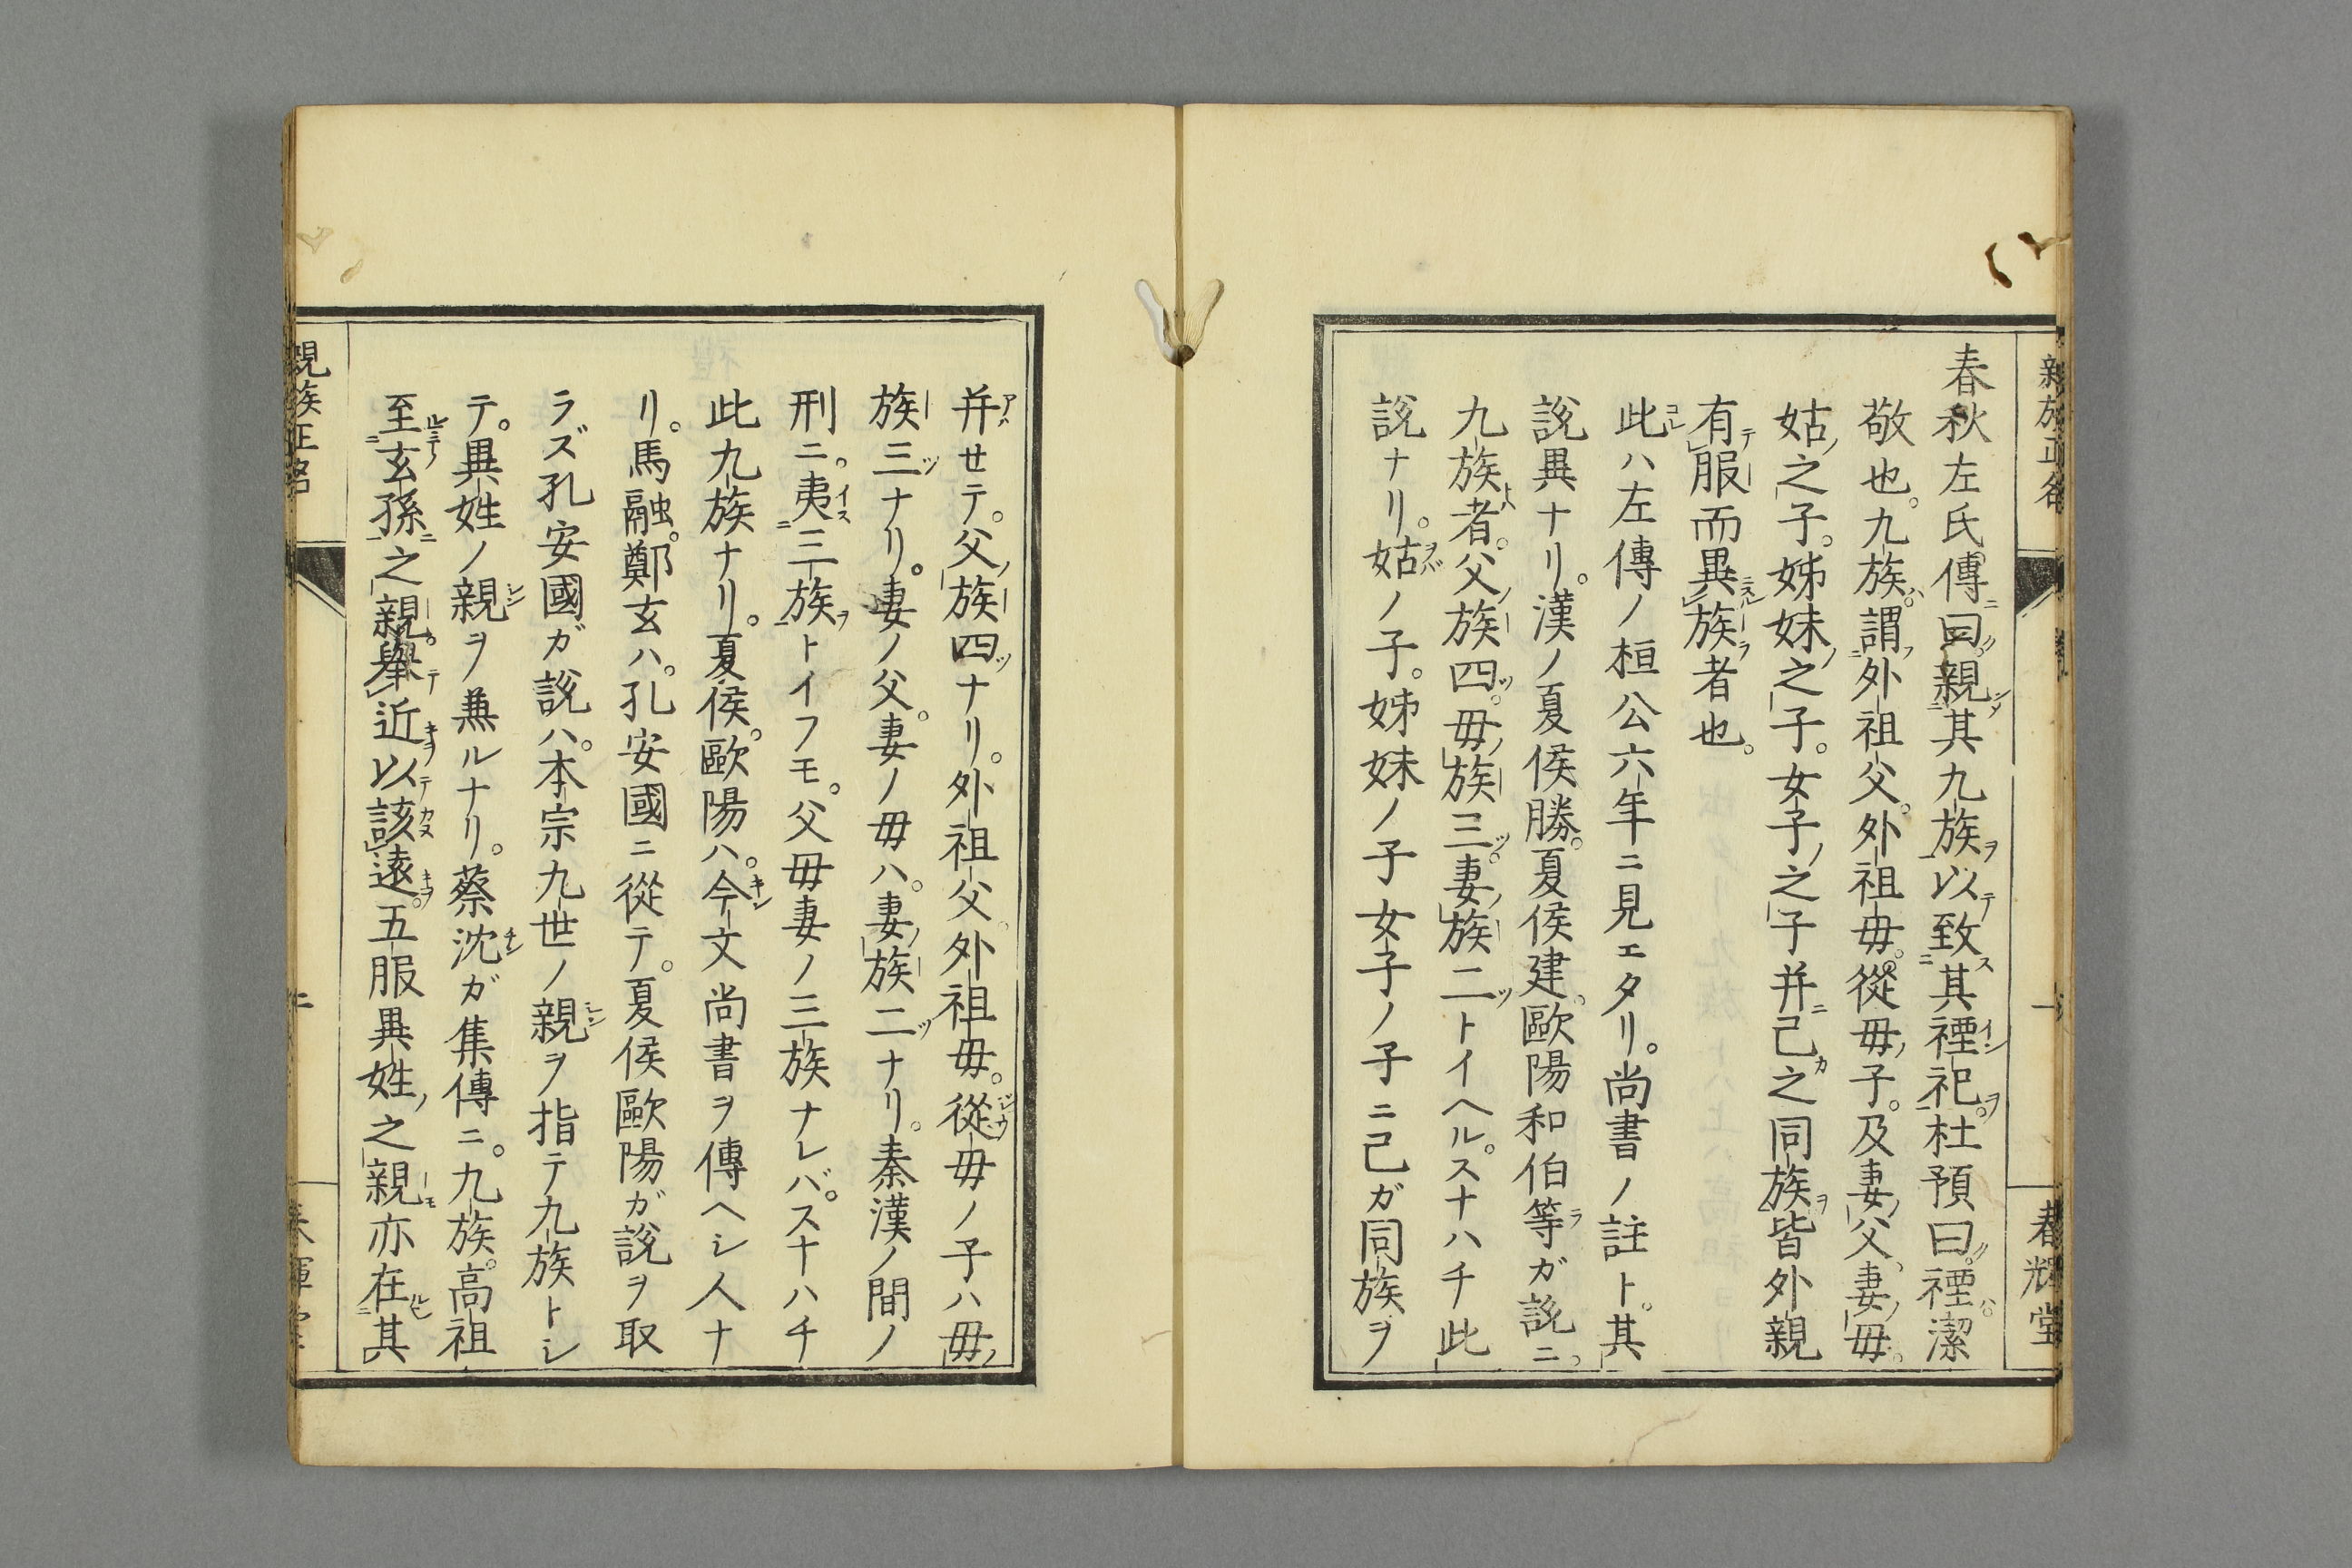 親族正名
春輝堂
春秋左氏傳曰。親其九族以致其禋祀。杜預曰。禋潔
敬也。九族。謂外祖父。外祖母。從母子。及妻父。妻母。
姑之子。姊妹之子。女子之子并己之同族皆外親
有服而異族者也。
此ハ左傳ノ桓公六年ニ見エタリ。尚書ノ註ト。其
說異ナリ。漢ノ夏侯勝。夏侯建。歐陽和伯等ガ說ニ。
九族者。父族四。母族三。妻族二トイヘル。スナハチ此
說ナリ。姑ノ子。姊妹ノ子女子ノ子ニ己ガ同族ヲ
并セテ。父族四ツナリ。外祖父。外祖母。從母ノ子ハ母
族三ツナリ。妻ノ父。妻ノ母ハ。妻族二ツナリ。秦漢ノ間ノ
刑ニ。夷三族トイフモ。父母妻ノ三族ナレバ。スナハチ
此九族ナリ。夏侯。歐陽ハ。今文尚書ヲ傳ヘシ人ナ
リ。馬融。鄭玄ハ。孔安國ニ從テ。夏侯歐陽ガ說ヲ取
ラズ孔安國ガ說ハ。本宗九世ノ親ヲ指テ九族トシ
テ。異姓ノ親ヲ兼ルナリ。蔡沈ガ集傳ニ。九族。高祖
至玄孫之親。舉近以該遠。五服異姓之親亦在其
親族正名